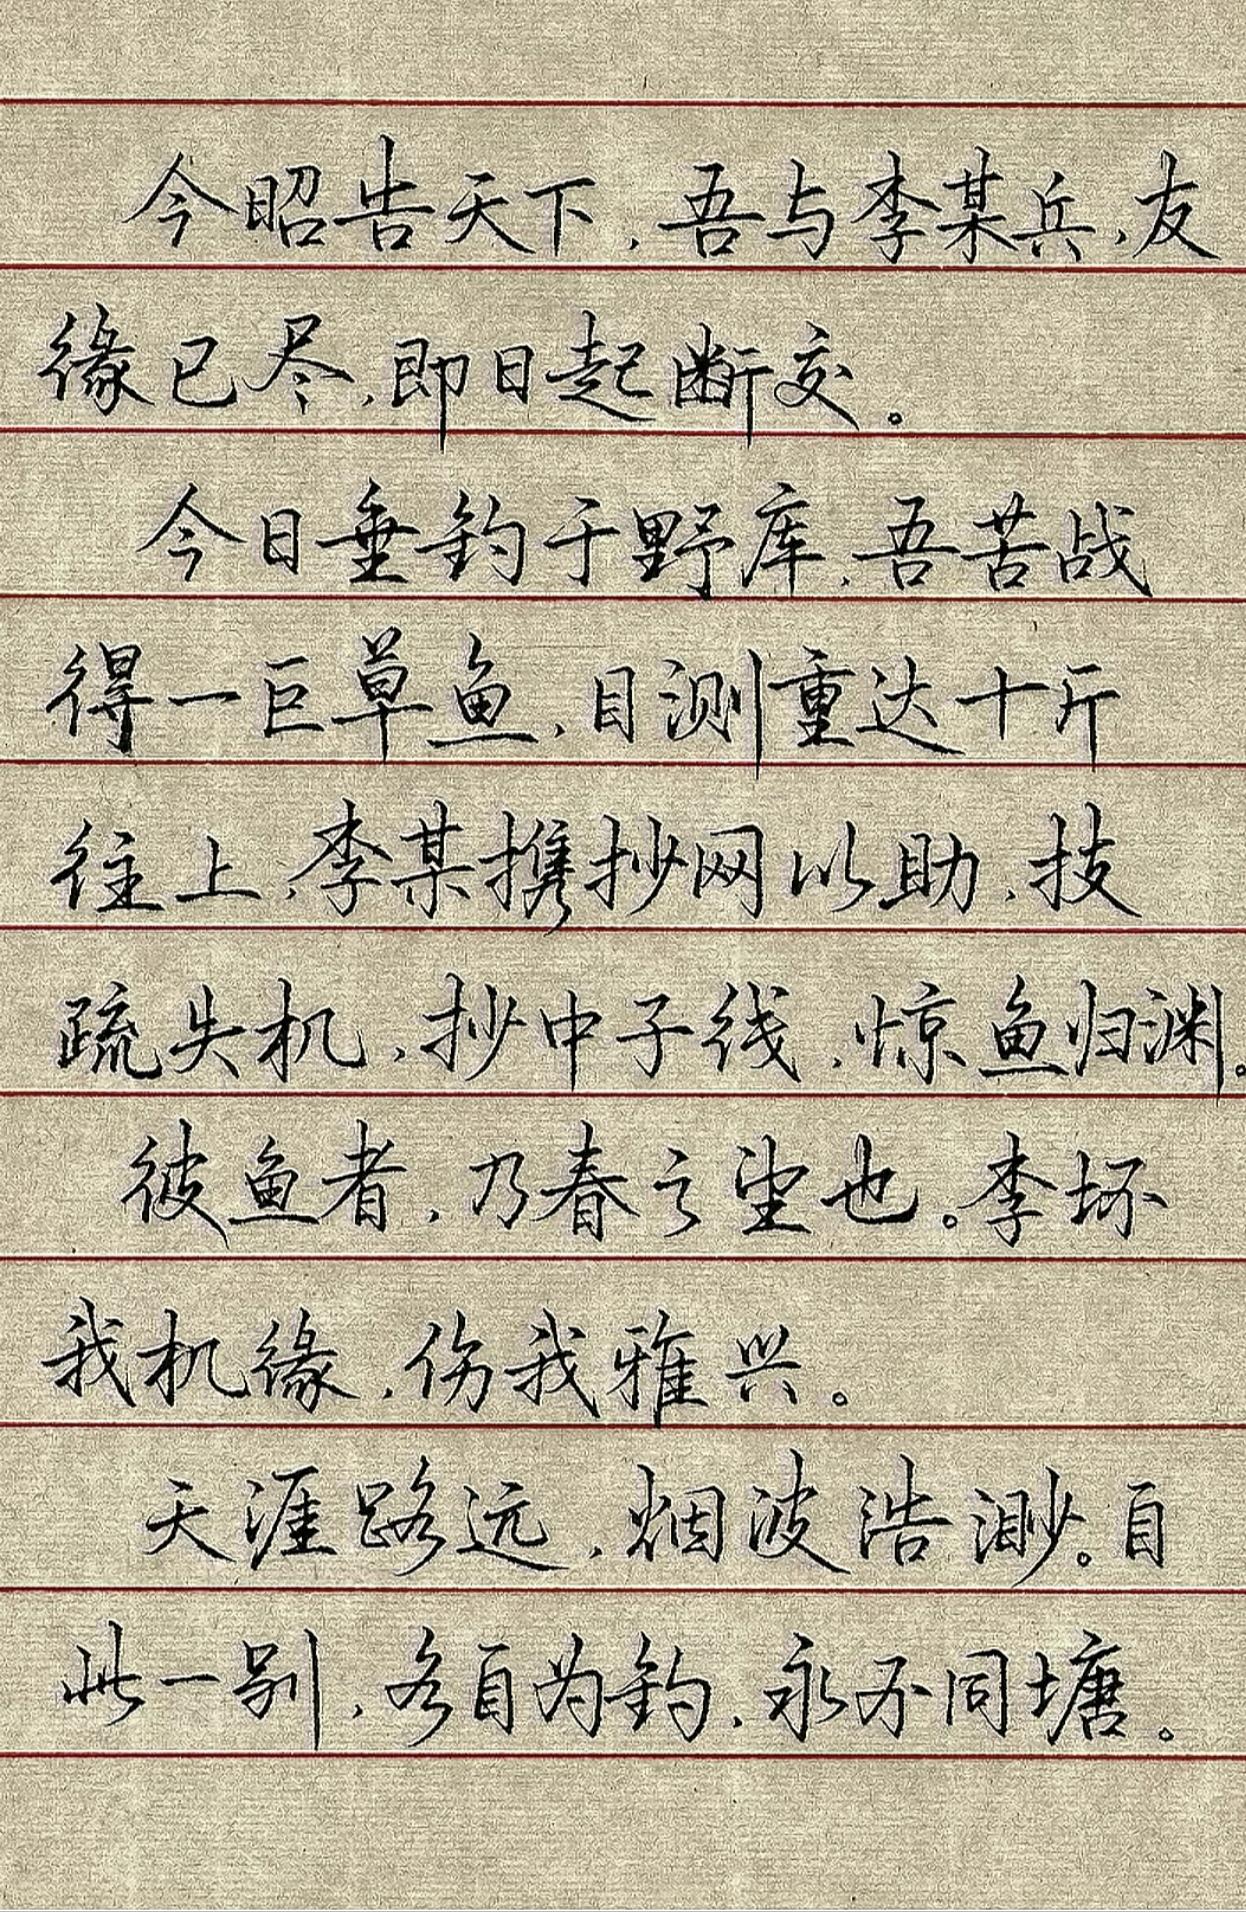 今昭告天下，吾与李某兵，友
缘已尽，即日起断交。
今日垂钓于野库，吾苦战
得一巨草鱼，目测重达十斤
往上，李某携抄网以助，技
疏失机，抄中子线，惊鱼归渊。
彼鱼者，乃春之望也。李坏
我机缘，伤我雅兴。
天涯路远，烟波浩渺。自
此一别，各自为钓，永不同塘。